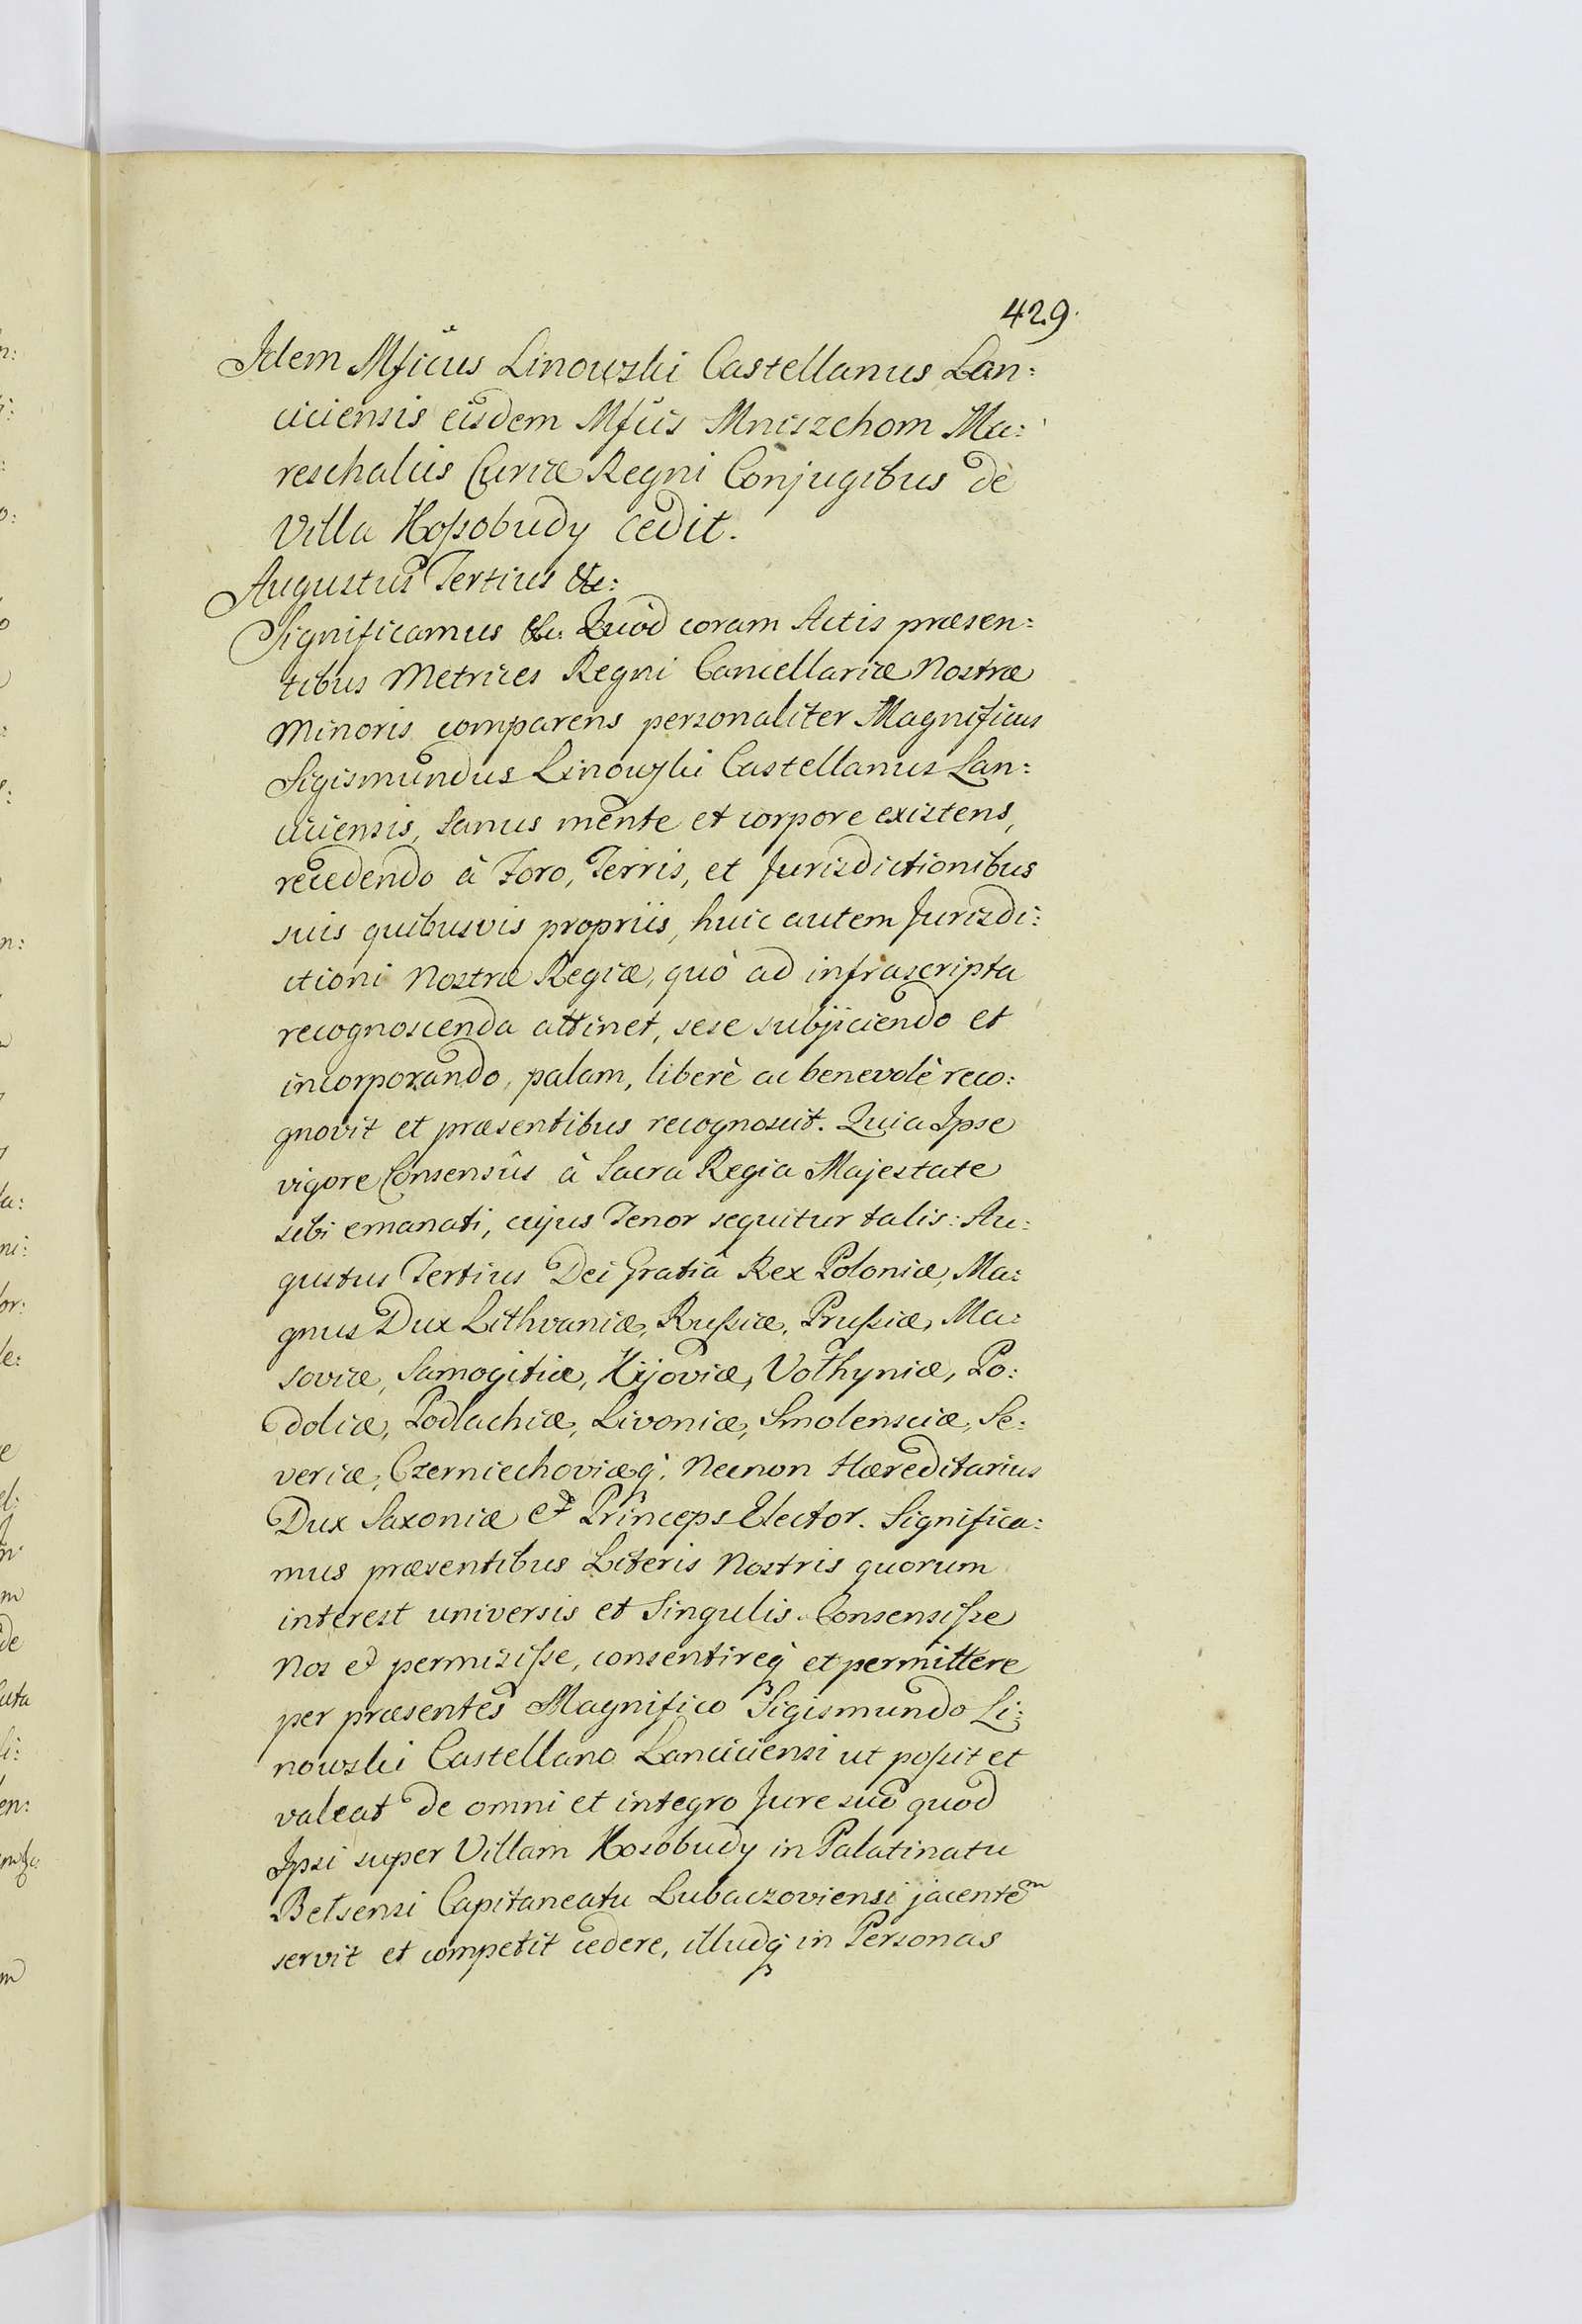 429.
Idem Mficus Linowski Castellanus Lan:
ciciensis eisdem Mfcis Mniszchom Ma:
reschalcis Curiæ Regni Conjugibus de
Villa Koſsobudy cedit.
Augustus Tertius &c:
Significamus &c. Quòd coram Actis præsen:
tibus Metrices Regni Cancellariæ Nostræ
Minoris comparens personaliter Magnificus
Sigismundus Linowski Castellanus Lan:
ciciensis, sanus mente et corpore existens,
recedendo à Foro, Terris, et Jurisdictionibus
suis quibusvis propriis, huic autem Jurisdi:
ctioni Nostræ Regiæ, quò ad infrascripta
recognoscenda attinet, sese subjiciendo et
incorporando, palam, liberè ac benevolè reco:
gnovit et præsentibus recognoscit. Quia Ipse
vigore Consensûs à Sacra Regia Majestate
sibi emanati, cujus Tenor sequitur talis: Au:
gustus Tertius Dei Gratiâ Rex Poloniæ, Ma:
gnus Dux Lithvaniæ, Ruſsiæ, Pruſsiæ, Ma:
soviæ, Samogitiæ, Kijoviæ, Volhyniæ, Po:
doliæ, Podlachiæ, Livoniæ, Smolensciæ, Se:
veriæ, Czerniechoviæq; Necnon Hæreditarius
Dux Saxoniæ et Princeps Elector. Significa:
mus præsentibus Literis Nostris quorum
interest universis et Singulis. Consensiſse
Nos et permisiſse, consentireq; et permittere
per præsentes Magnifico Sigismundo Li:
nowski Castellano Lanciciensi ut poſsit et
valeat de omni et integro Jure suo quod
Ipsi super Villam Kosobudy in Palatinatu
Belsensi Capitaneatu Lubaczoviensi jacentem
servit et competit cedere, illudq; in Personas